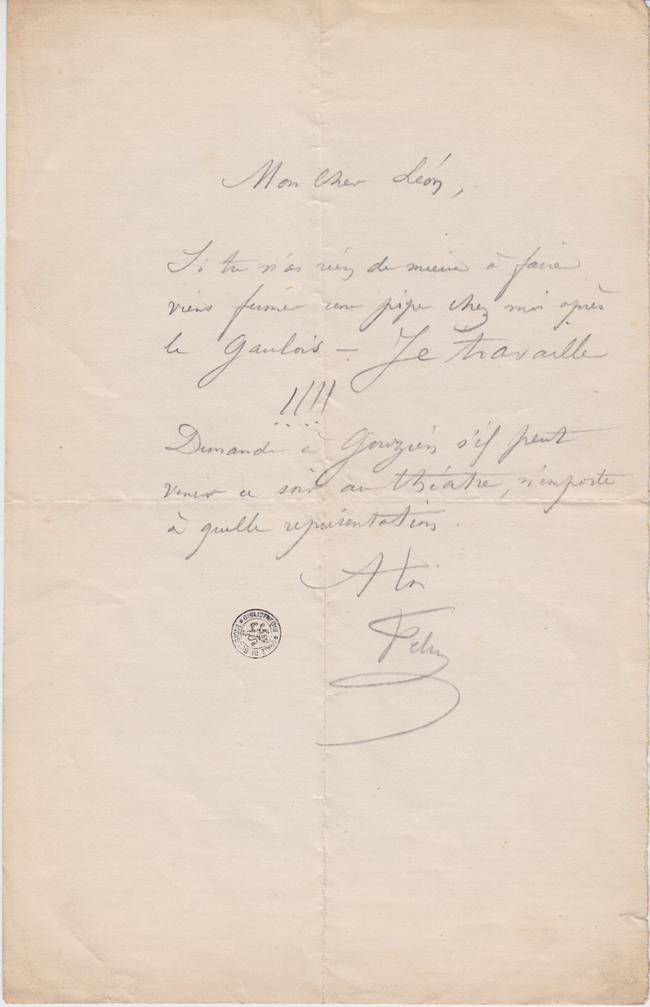 Mon cher Léon,
Si tu n'as rien de mieux à faire
viens fumer une pipe chez moi après
le Gaulois – Je travaille
!!!!
Demande à Gouzien s'il peut
venir ce soir au théâtre, n'importe
à quelle représentation.
A toi
Fely
BIBLIOTHÈQUE ROYALE DE BELGIQUE